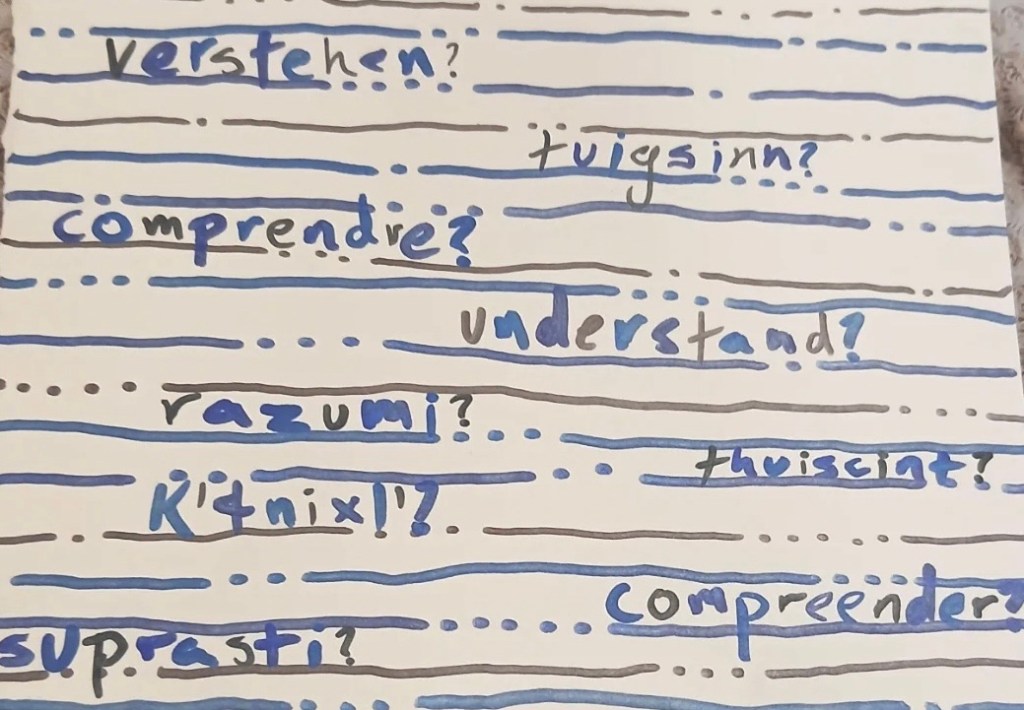 verstehen?
tuigsinn?
comprendre?
understand?
razumi?
thuiscint?
compreender?
suprasti?